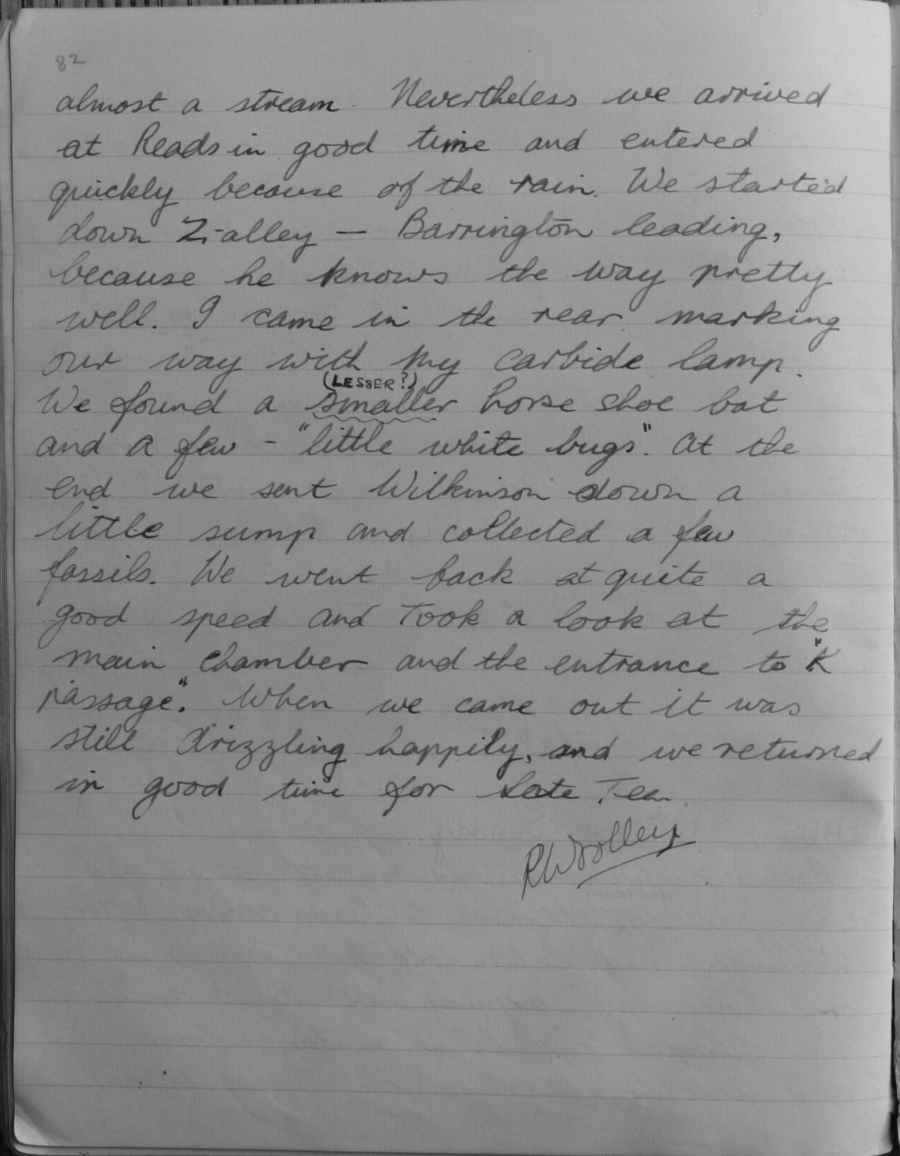 82
almost a stream. Nevertheless we arrived
at Reads in good time and entered
quickly because of the rain. We started
down Z-alley — Barrington leading,
because he knows the way pretty
well. I came in the rear marking
our way with my carbide lamp.
(LESSER?)
We found a smaller horse shoe bat
and a few - "little white bugs". At the
end we sent Wilkinson down a
little sump and collected a few
fossils. We went back at quite a
good speed and took a look at the
main chamber and the entrance to "K
passage". When we came out it was
still drizzling happily, and we returned
in good time for late Tea.
RWoolley